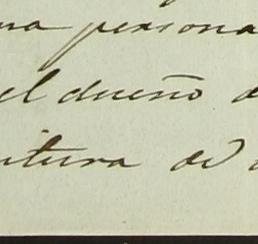 na persona
el dueño d
itura de